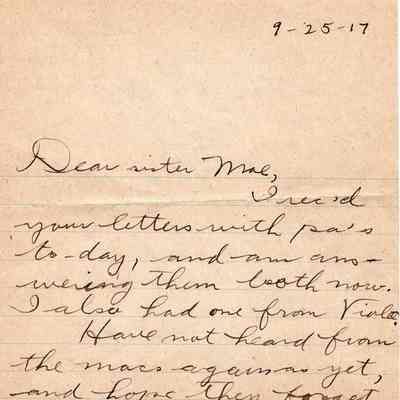 9-25-17
Dear sister Mae,
I rec'd
your letters with pa's
to-day, and am ans-
wering them both now.
I also had one from Viola.
Have not heard from
the macs again as yet,
and hope they forget